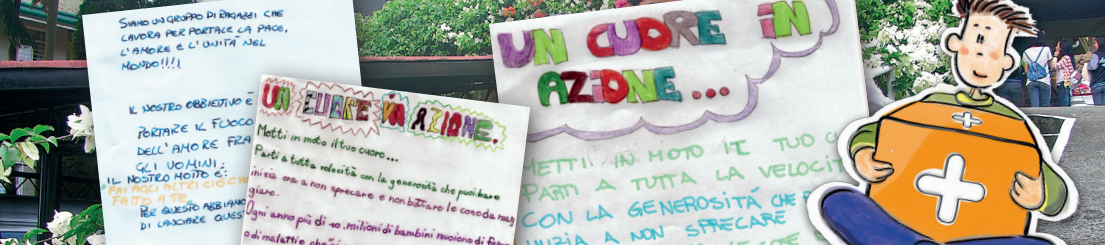 SIAMO UN GRUPPO DI RAGAZZI CHE
LAVORA PER PORTARE LA PACE,
L'AMORE E L'UNITÀ NEL
MONDO!!!!
IL NOSTRO OBBIETTIVO È
PORTARE IL FUOCO
DELL'AMORE FRA
GLI UOMINI.
IL NOSTRO MOTTO È:
FAI AGLI ALTRI CIÒ CH
FATTO A TE
PER QUESTO ABBIAMO
DI LANCIARE QUES
UN CUORE IN AZIONE.
Metti in moto il tuo cuore...
Parti a tutta velocità con la generosità che puoi dare
inizia ora a non sprecare e non buttare le cose da man
giare.
Ogni anno più di 10 milioni di bambini muoiono di
o di malattie che
UN CUORE IN
AZIONE...
METTI IN MOTO IL TUO CU
PARTI A TUTTA LA VELOCIT
CON LA GENEROSITÁ CHE
INIZIA A NON SPRECARE